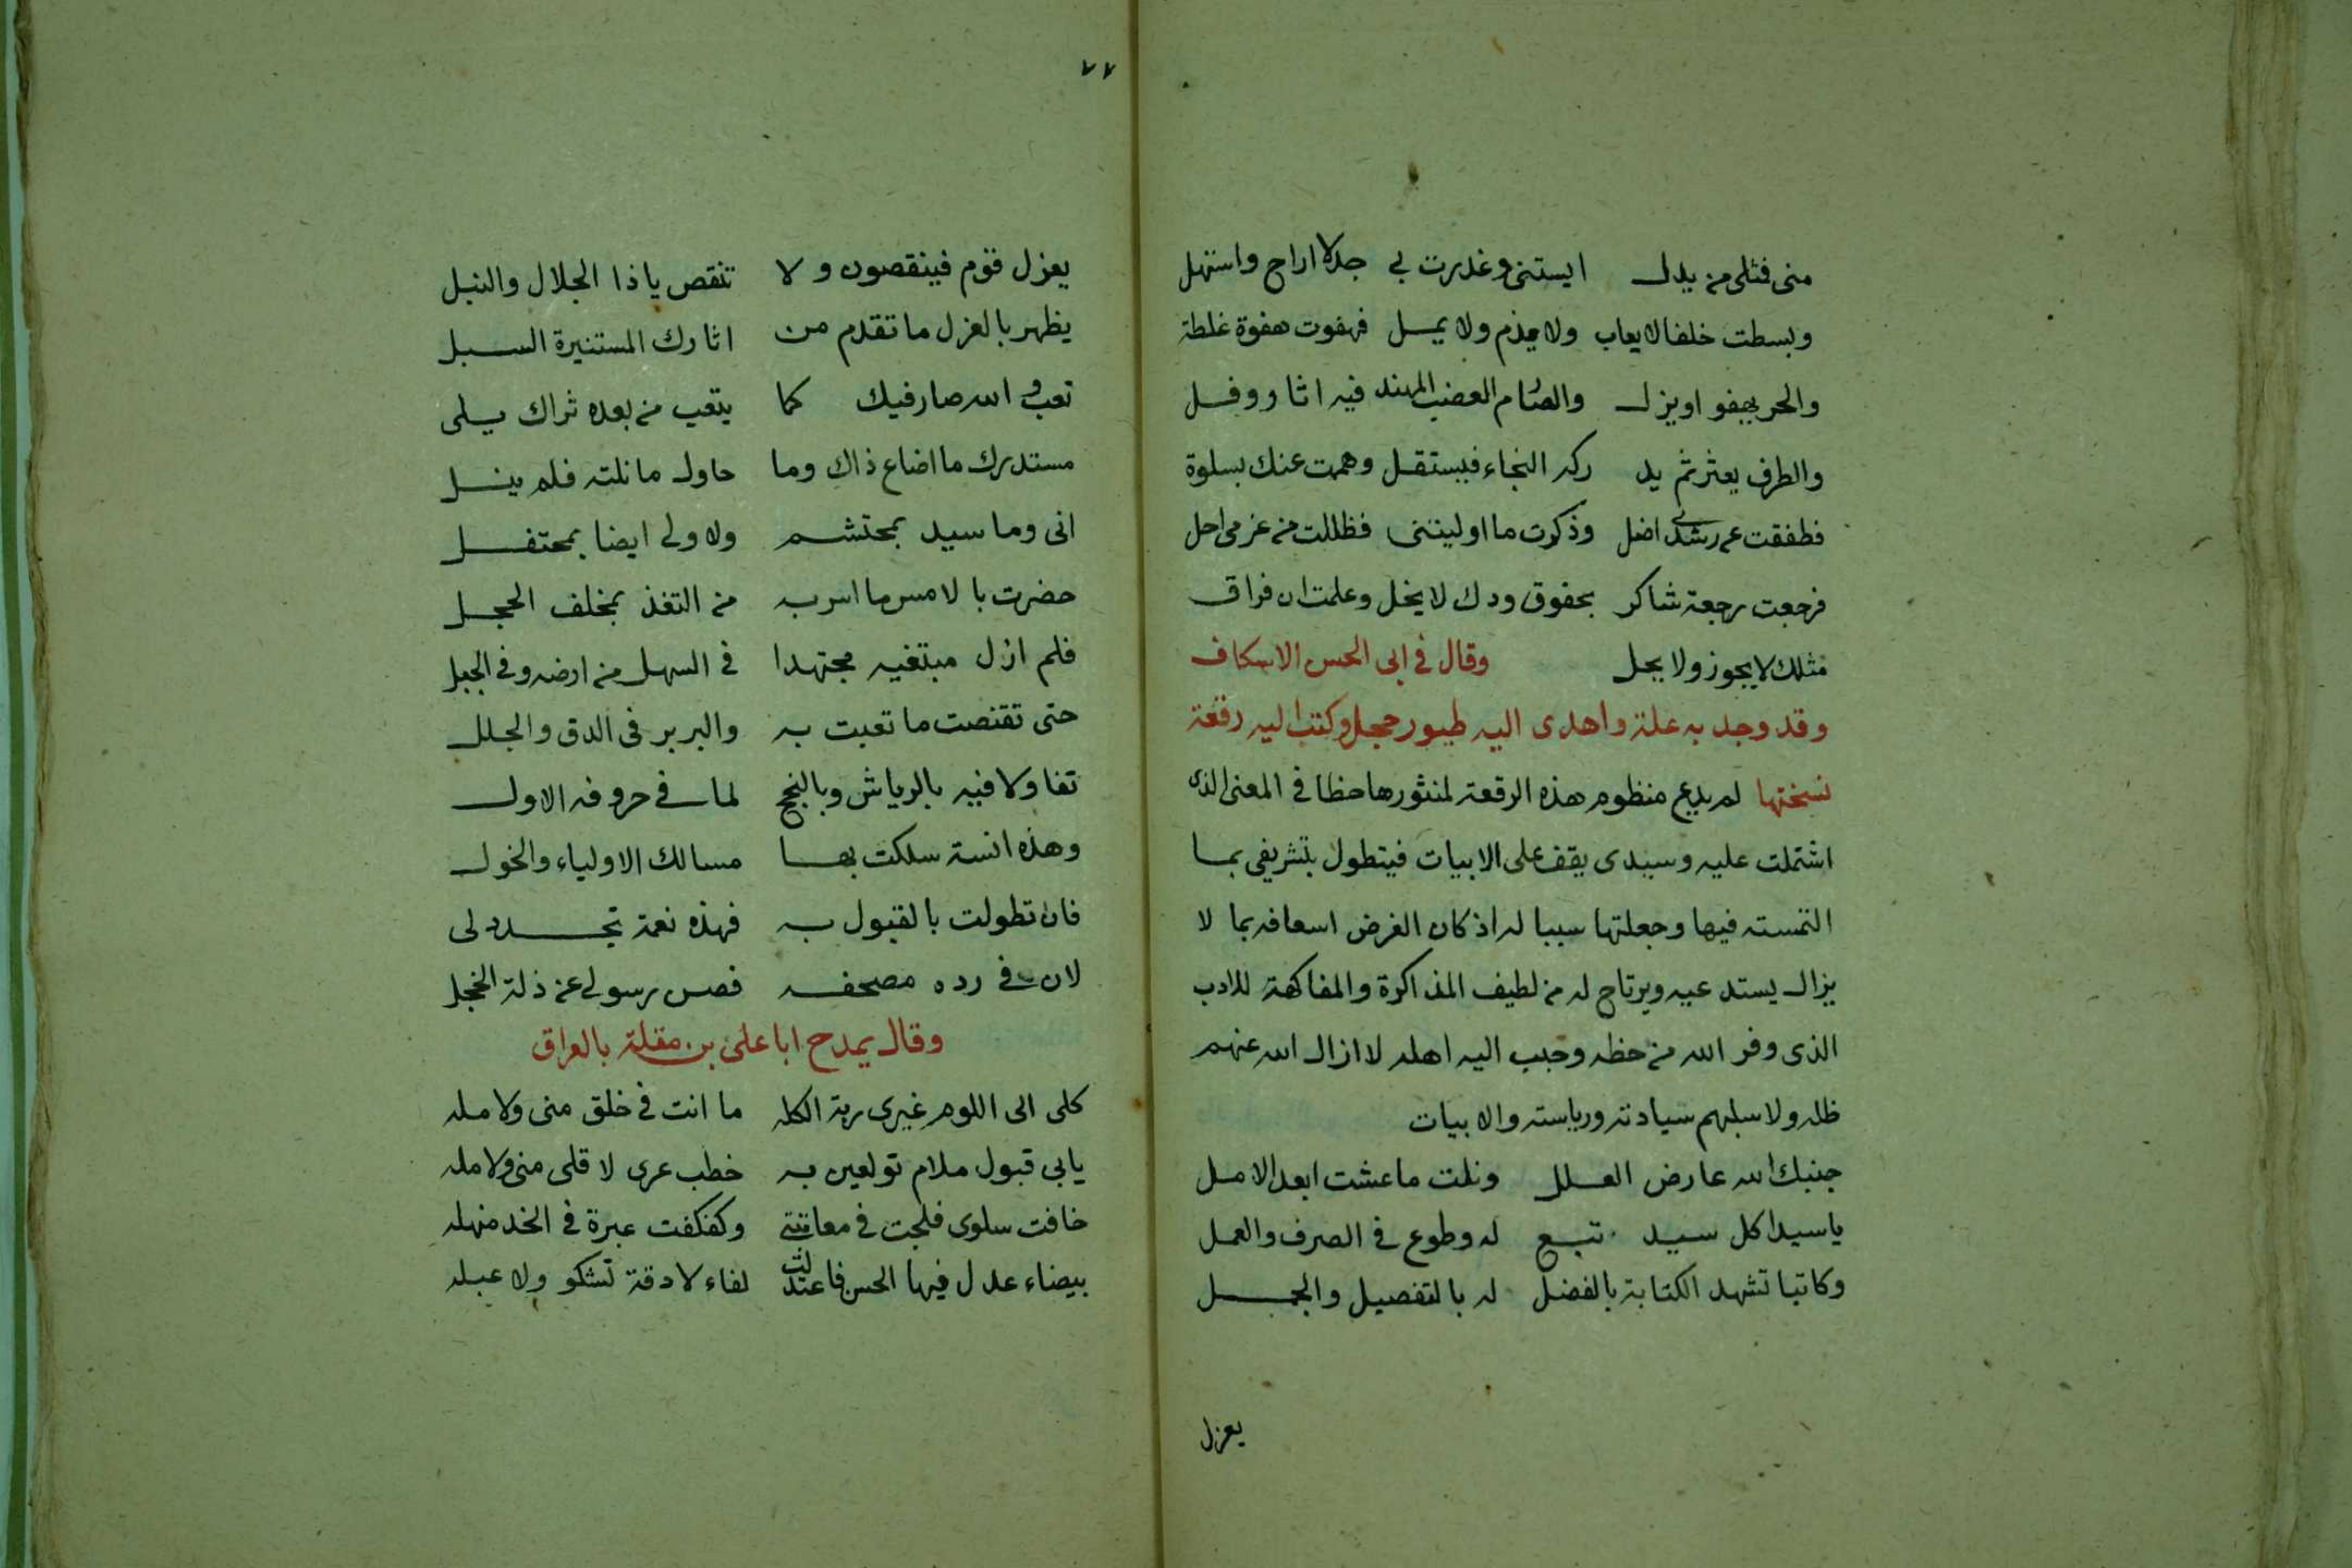 منى فثلى من يدل ايستنى وغدرت بى جدلا اراح واستهل
وبسطت خلفا لا يعاب ولا يذم ولا يمل فهفوت هفوة غلطة
والحر يهفو او يزل والصام العضب المهند فيه اثار وفل
والطرف يعثر ثم يد ركه النجاء فيستقل وهمت عنك بسلوة
فطفقت عن رشدى اضل وذكرت ما اوليتنى فظللت من عزمى احل
فرجعت رجعة شاكر بحقوق ودك لا يخل وعلمت ان فراق
مثلك لا يجوز ولا يحل وقال فى ابى الحسن الاسكاف
وقد وجد به علة واهدى اليه طيور حجل وكتب اليه رقعة
نسختها لم يدع منظوم هذه الرقعة لمنثورها حظا فى المعنى الذى
اشتملت عليه وسيدى يقف على الابيات فيتطول بتشريفى بما
التمسته فيها وجعلتها سببا له اذ كان الغرض اسعافه بما لا
يزال يستدعيه ويرتاح له من لطيف المذاكرة والمفاكهة للادب
الذى وفر الله من حظه وحبب اليه اهله لا ازال الله عنهم
ظله ولا سلبهم سيادته ورياسته والابيات
جنبك الله عارض العلل ونلت ما عشت ابعد الامل
يا سيدا كل سيد تبع له وطوع فى الصرف والعمل
وكاتبا تشهد الكتابة بالفضل له بالتفصيل والجمل
يعزل
٧٧
يعزل قوم فينقصون ولا تنقص يا ذا الجلال والنبل
يظهر بالعزل ما تقدم من اثارك المستنيرة السبل
تعب والله صار فيك كما يتعب من بعده ثراك يلى
مستدرك ما اضاع ذاك وما حاول ما نلته فلم ينل
انى وما سيد بمحتشم ولا ولى ايضا بمحتفل
حضرت بالامس ما اسر به من التغذ بمخلف الحجل
فلم ازل مبتغيه مجتهدا فى السهل من ارضه وفى الجبل
حتى تقنصت ما تعبت به والبر بر فى الدق والجلل
تفاولا فيه بالرياش وبالنجح لما فى حروفه الاول
وهذه انسة سلكت بها مسالك الاولياء والخول
فان تطولت بالقبول به فهذه نعمة تجدد لى
لان فى رده مصحفه فصن رسولى عن ذلة الخجل
وقال يمدح ابا على بن مقلة بالعراق
كلى الى اللوم غيرى ربة الكله ما انت فى خلق منى ولا مله
يابى قبول ملام تولعين به خطب عرى لا قلى منى ولا مله
خافت سلوى فلجت فى معاتبتى وكفكفت عبرة فى الخد منهله
بيضاء عدل فيها الحسن فاعتدلت لفاء لا دقة تشكو ولا عبله